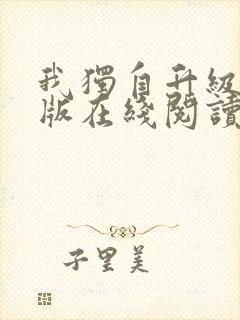 我獨自升級
版在綫閱讀
子里美